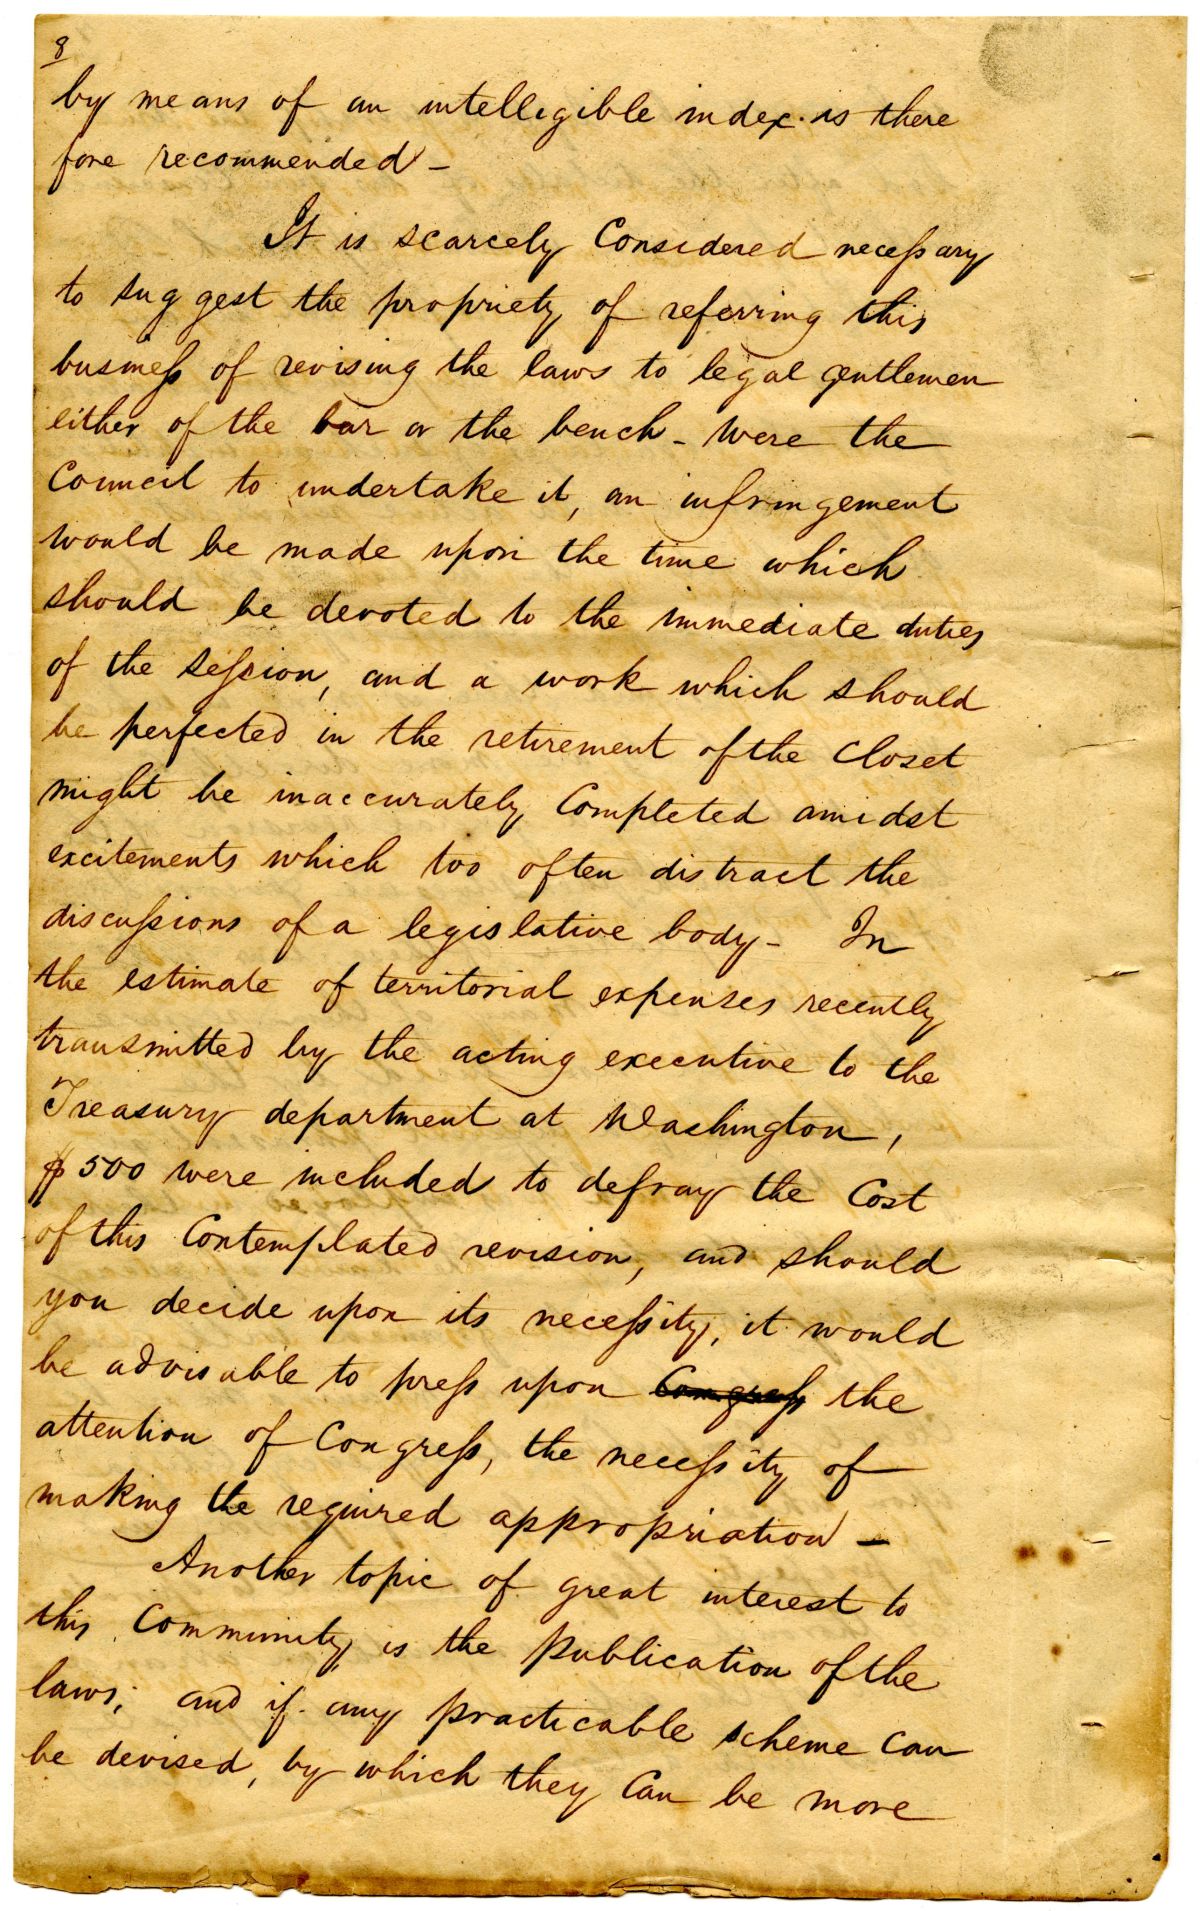 8
by means of an intelligible index. is there
fore recommended -
It is scarcely Considered necessary
to suggest the propriety of referring this
business of revising the laws to legal gentlemen
either of the bar or the bench - Were the
Council to undertake it, an infringement
would be made upon the time which
should be devoted to the immediate duties
of the session, and a work which should
be perfected in the retirement of the Closet
might be inaccurately Completed amidst
excitements which too often distract the
discussions of a legislative body - In
the estimate of territorial expenses recently
transmitted by the acting executive to the
Treasury department at Washington,
$500 were included to defray the Cost
of this Contemplated revision, and should
you decide upon its necessity, it would
be advisable to press upon Congress the
attention of Congress, the necessity of
making the required appropriation -
Another topic of great interest to
this Community, is the publication of the
laws; and if any practicable scheme can
be devised, by which they Can be more